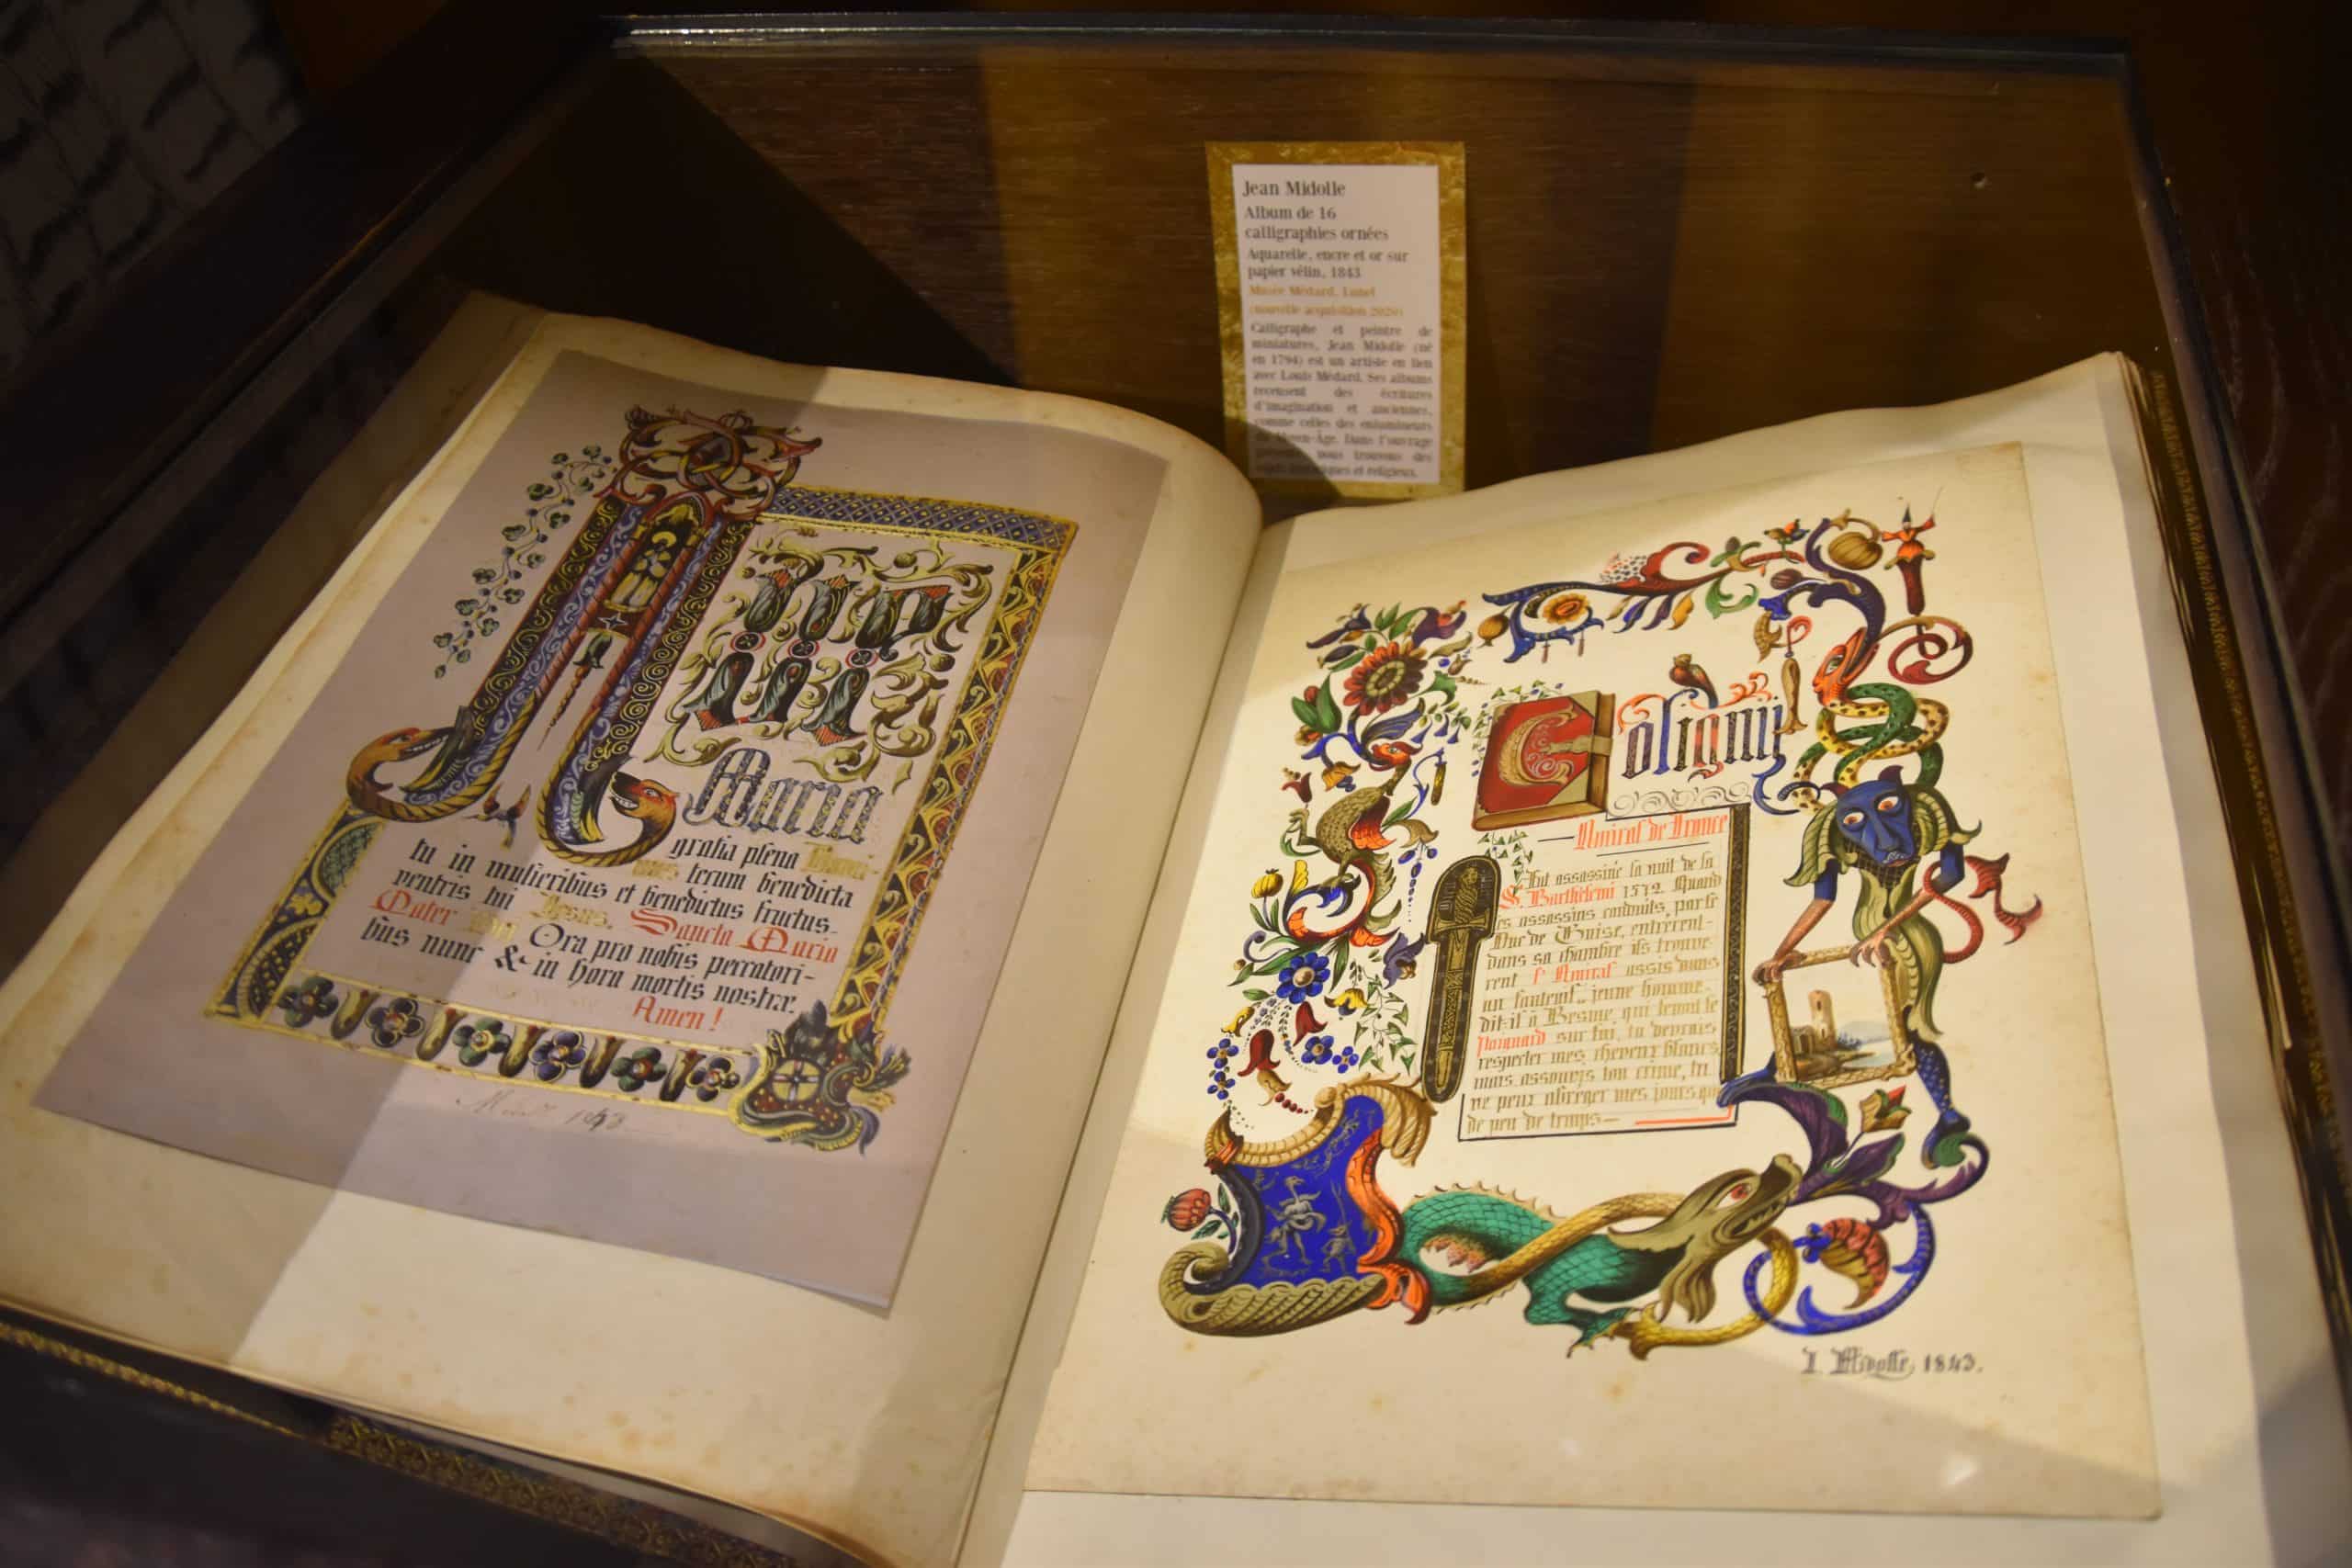 Jean Midolle
Album de 16
calligraphies ornées
Aquarelle, encre et or sur
papier vélin, 1843
Musée Médard, Lunel
(nouvelle acquisition 2020)
Calligraphe et peintre de
miniatures, Jean Midolle (né
en 1794) est un artiste en lien
avec Louis Médard. Ses albums
recensent des écritures
d'imagination et anciennes,
comme celles des enlumineurs
du Moyen-Âge. Dans l'ouvrage
présenté, nous trouvons des
sujets historiques et religieux.
Maria
gratia plena
tecum benedicta
tu in mulieribus et benedictus fructus
ventris tui Jesus. Sancta Maria
Mater Dei Ora pro nobis peccatori-
bus nunc & in hora mortis nostræ.
Amen !
1843
Coligny
Amiral de France
Fut assassiné la nuit de la
S. Barthélemi 1572. Quand
les assassins conduits, par le
Duc de Guise, entrerent
dans sa chambre ils trouve-
rent l'Amiral assis dans
un fauteuil. jeune homme.
dit-il à Besme, qui tenoit le
Poignard sur lui, tu devrais,
respecter mes cheveux blancs
mais, assouvis ton crime, tu
ne peux abreger mes jours que
de peu de temps
J. Midolle, 1843.